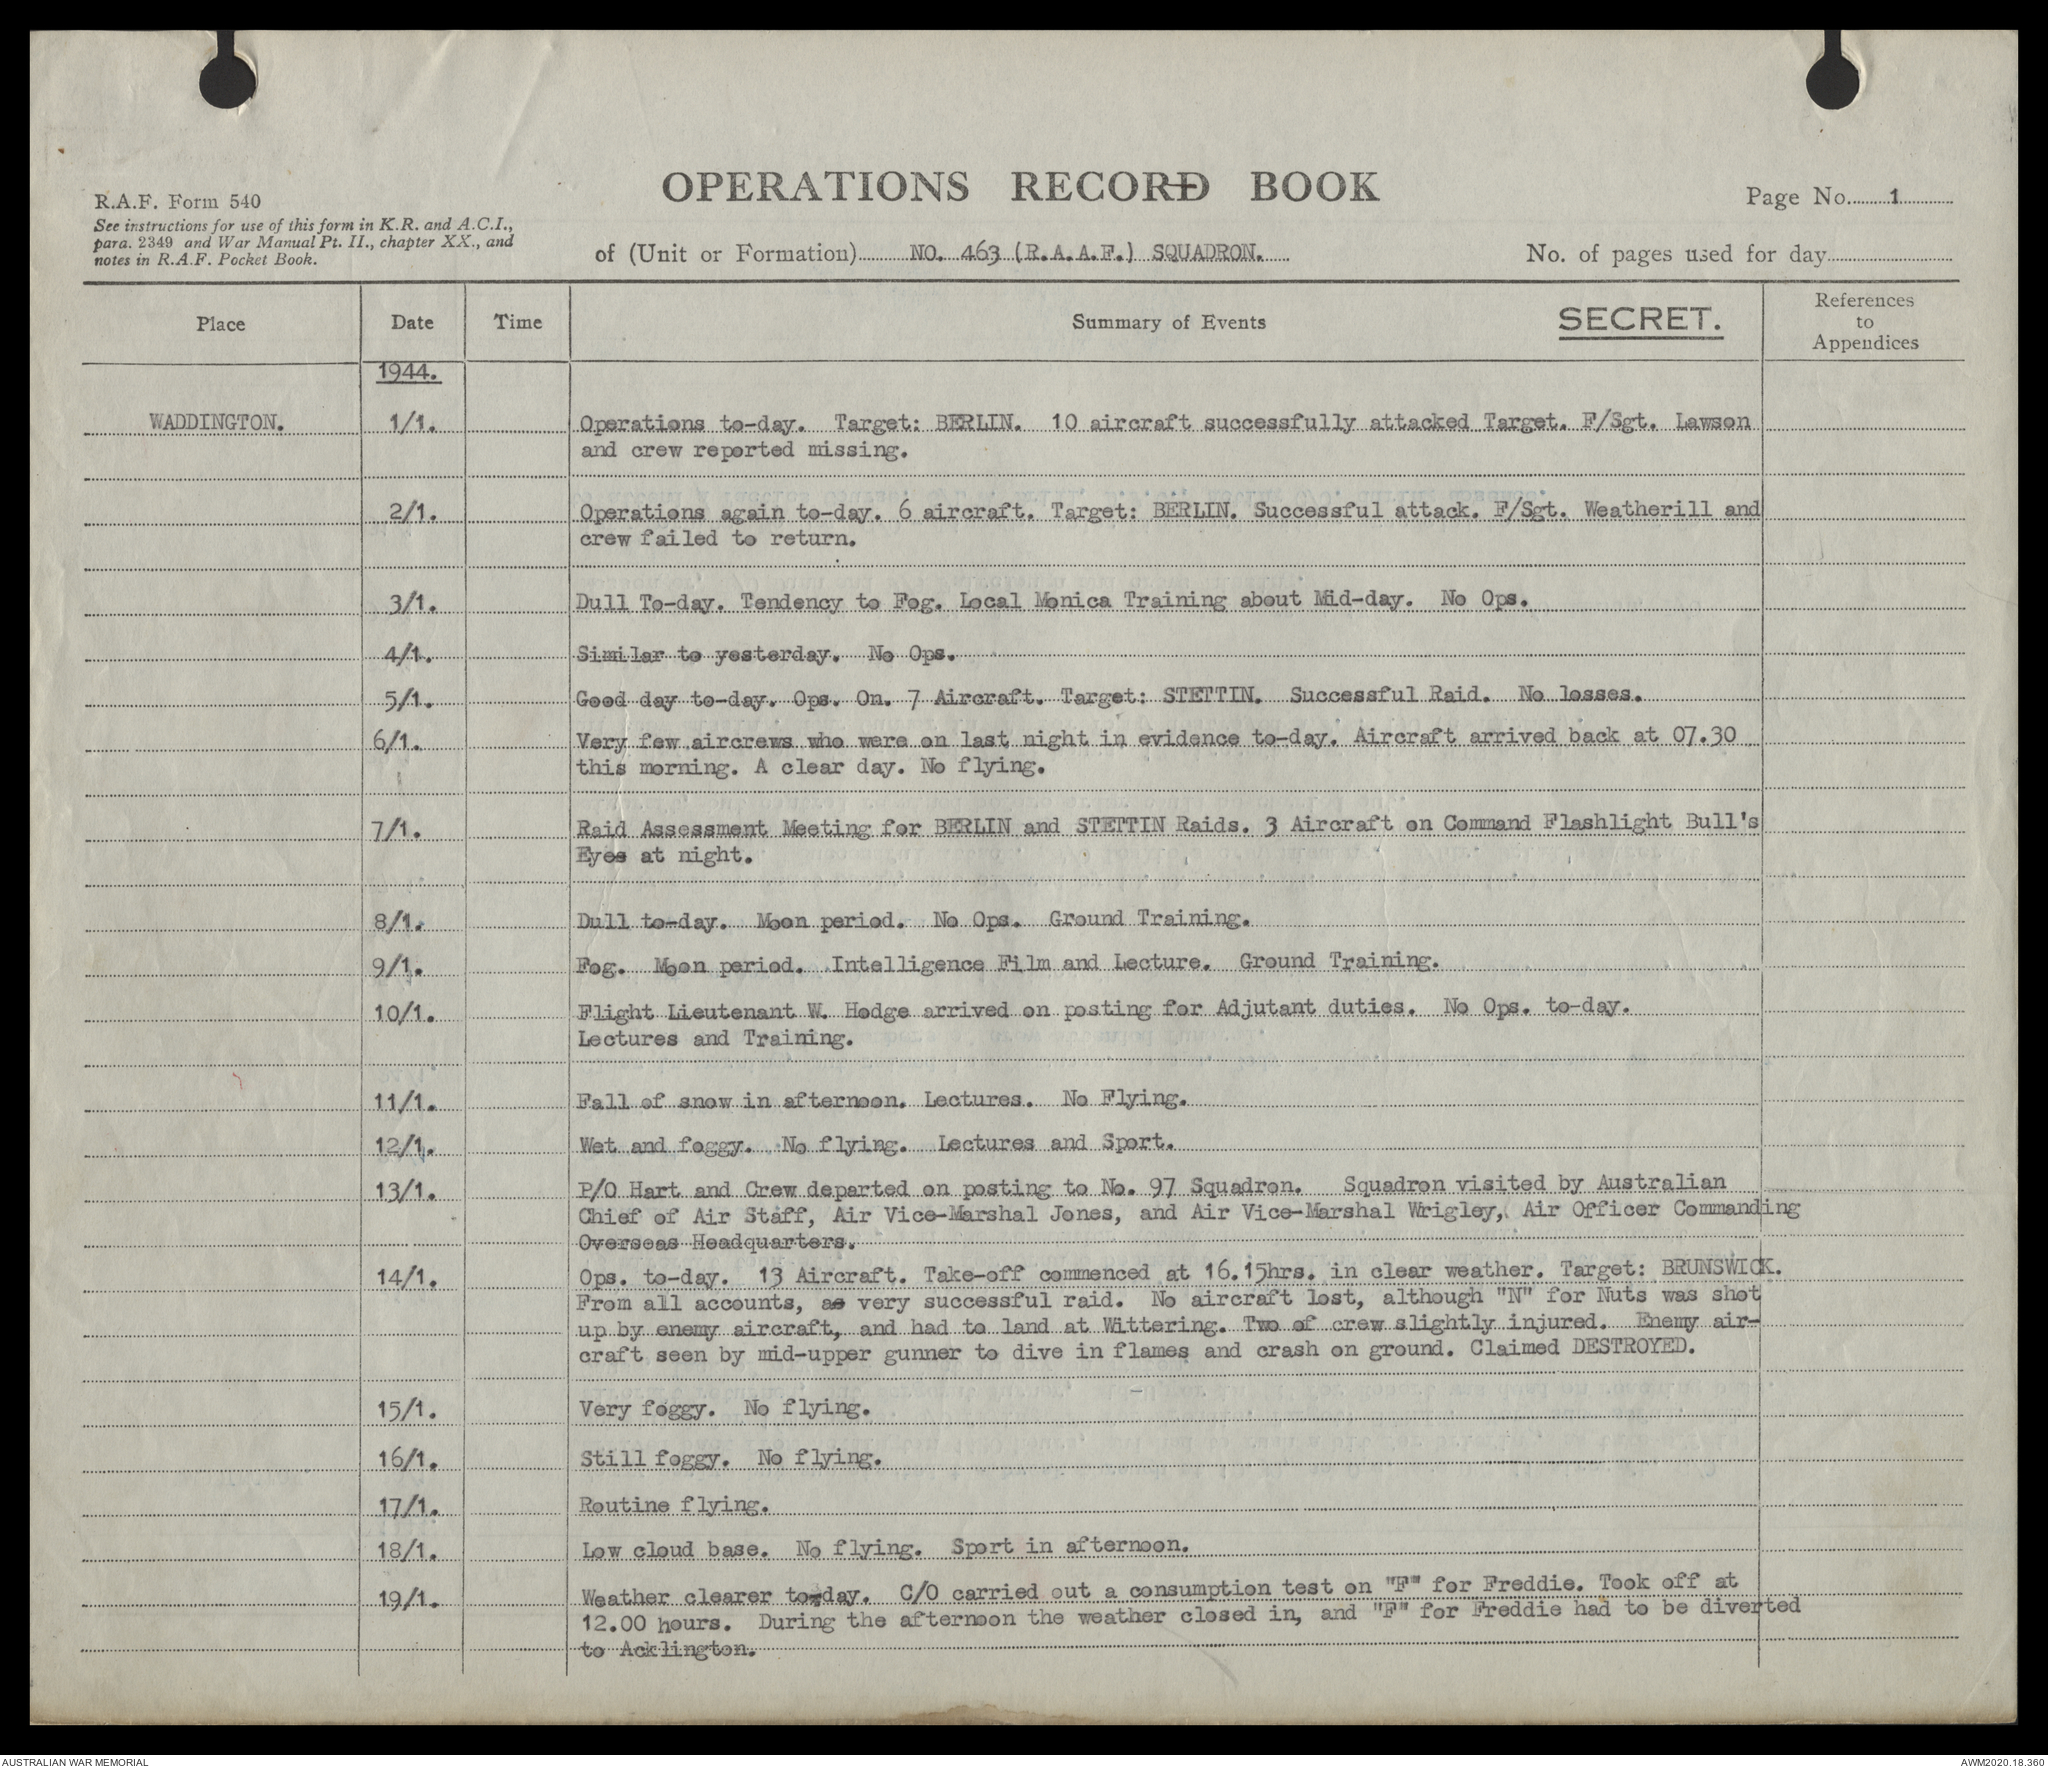 OPERATIONS RECORD BOOK
R.A.F. Form 540
See instructions for use of this form in K.R. and A.C.I.,
para. 2349 and War Manual Pt. II., chapter XX., and
notes in R.A.F. Pocket Book.
Page No. 1
of (Unit or Formation) NO. 463 (R.A.A.F.) SQUADRON.
No. of pages used for day
Place Date Time Summary of Events SECRET. References to Appendices
1944.
WADDINGTON. 1/1. Operations to-day. Target: BERLIN. 10 aircraft successfully attacked Target. F/Sgt. Lawson
and crew reported missing.
2/1. Operations again to-day. 6 aircraft. Target: BERLIN. Successful attack. F/Sgt. Weatherill and
crew failed to return.
3/1. Dull To-day. Tendency to Fog. Local Monica Training about Mid-day. No Ops.
4/1. Similar to yesterday. No Ops.
5/1. Good day to-day. Ops. On. 7 Aircraft. Target: STETTIN. Successful Raid. No losses.
6/1. Very few aircrews who were on last night in evidence to-day. Aircraft arrived back at 07.30
this morning. A clear day. No flying.
7/1. Raid Assessment Meeting for BERLIN and STETTIN Raids. 3 Aircraft on Command Flashlight Bull's
Eyes at night.
8/1. Dull to-day. Moon period. No Ops. Ground Training.
9/1. Fog. Moon period. Intelligence Film and Lecture. Ground Training.
10/1. Flight Lieutenant W. Hodge arrived on posting for Adjutant duties. No Ops. to-day.
Lectures and Training.
11/1. Fall of snow in afternoon. Lectures. No Flying.
12/1. Wet and foggy. No flying. Lectures and Sport.
13/1. P/O Hart and Crew departed on posting to No. 97 Squadron. Squadron visited by Australian
Chief of Air Staff, Air Vice-Marshal Jones, and Air Vice-Marshal Wrigley, Air Officer Commanding
Overseas Headquarters.
14/1. Ops. to-day. 13 Aircraft. Take-off commenced at 16.15hrs. in clear weather. Target: BRUNSWICK.
From all accounts, a very successful raid. No aircraft lost, although "N" for Nuts was shot
up by enemy aircraft, and had to land at Wittering. Two of crew slightly injured. Enemy air-
craft seen by mid-upper gunner to dive in flames and crash on ground. Claimed DESTROYED.
15/1. Very foggy. No flying.
16/1. Still foggy. No flying.
17/1. Routine flying.
18/1. Low cloud base. No flying. Sport in afternoon.
19/1. Weather clearer to-day. C/O carried out a consumption test on "F" for Freddie. Took off at
12.00 hours. During the afternoon the weather closed in, and "F" for Freddie had to be diverted
to Acklington.
AUSTRALIAN WAR MEMORIAL AWM2020.18.360